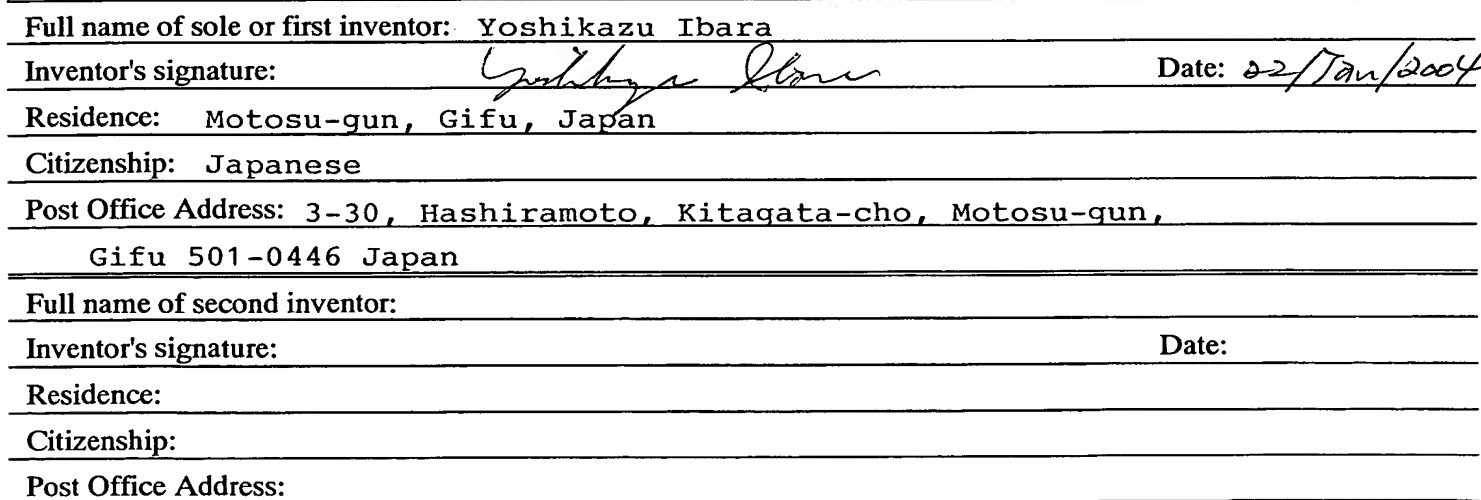 Full name of sole or first inventor: Yoshikazu Ibara
Inventor's signature: Yoshikazu Ibara Date: 22/Jan/2004
Residence: Motosu-gun, Gifu, Japan
Citizenship: Japanese
Post Office Address: 3-30, Hashiramoto, Kitagata-cho, Motosu-gun,
Gifu 501-0446 Japan
Full name of second inventor:
Inventor's signature: Date:
Residence:
Citizenship:
Post Office Address: